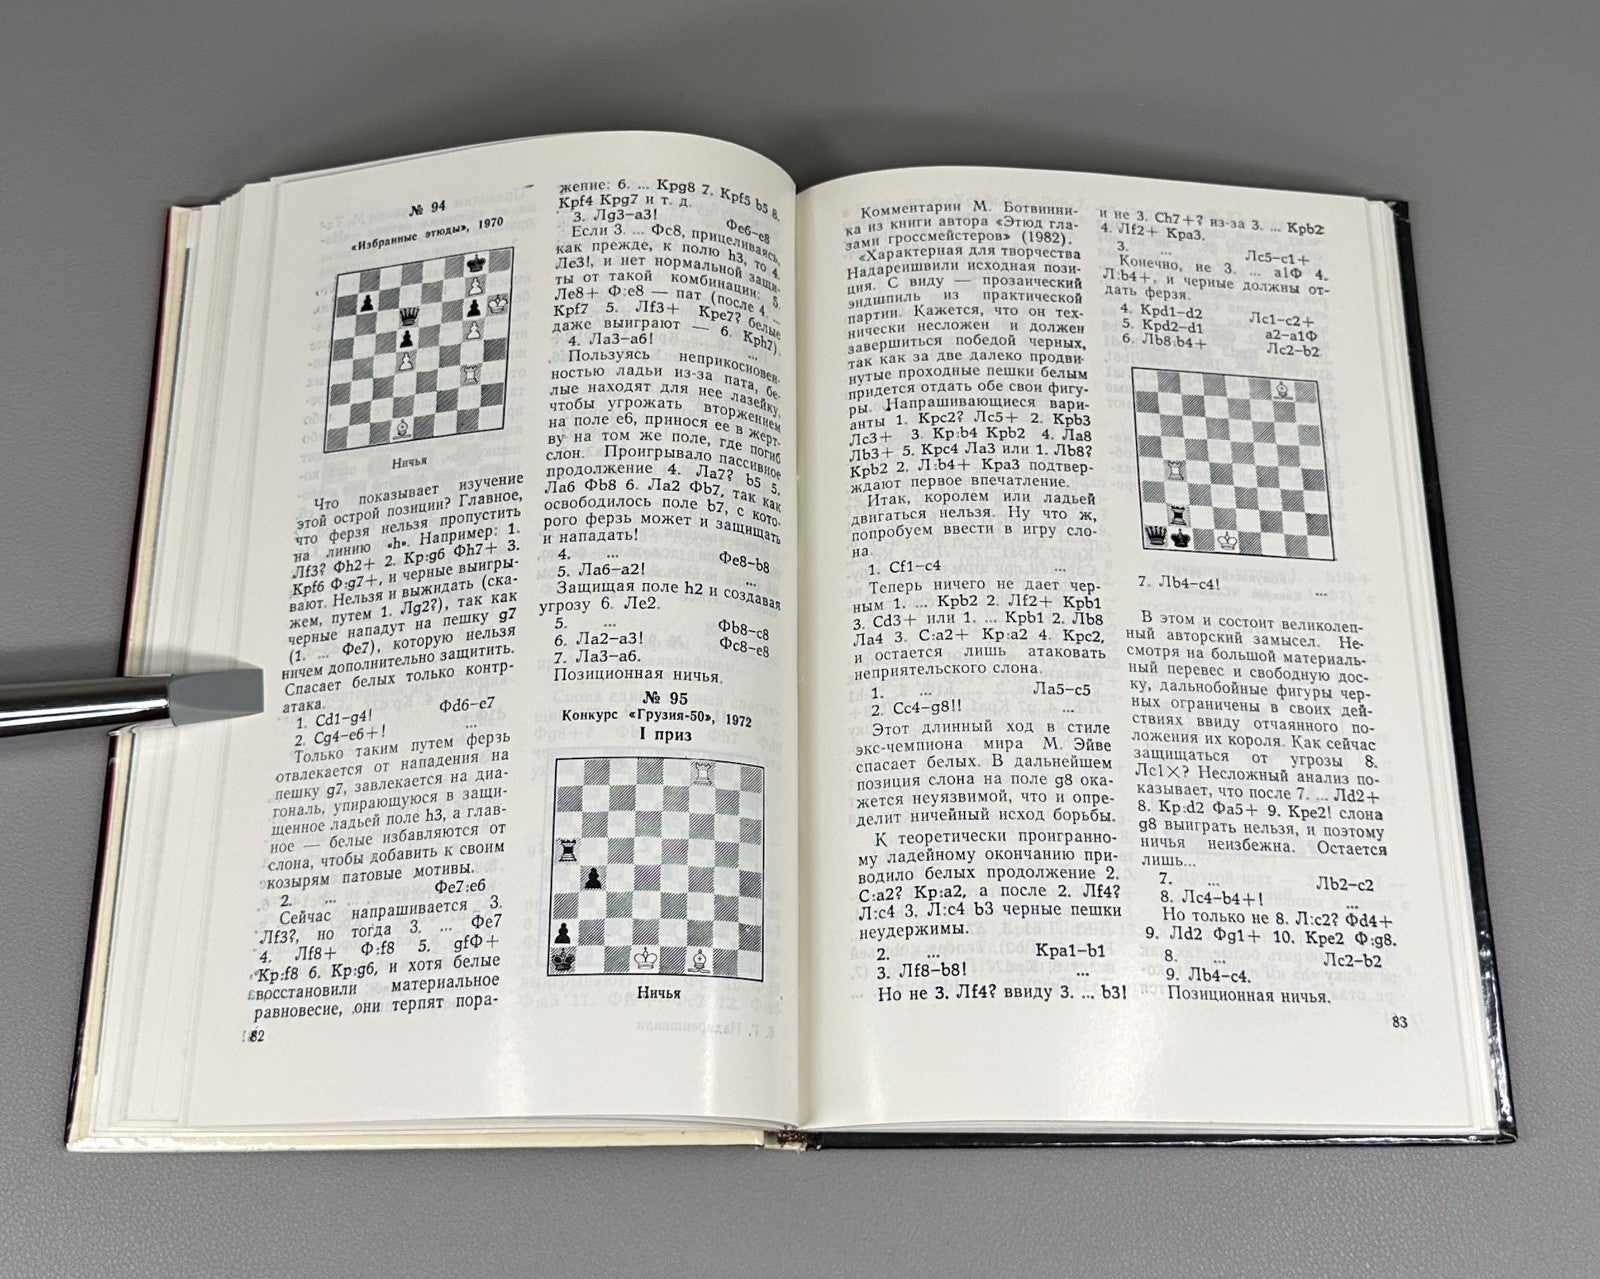 № 94
«Избранные этюды», 1970
Ничья
Что показывает изучение
этой острой позиции? Главное,
что ферзя нельзя пропустить
на линию «h». Например: 1.
Лf3? Фh2+ 2. Кр:g6 Фh7+ 3.
Крf6 Ф:g7+, и черные выигры-
вают. Нельзя и выжидать (ска-
жем, путем 1. Лg2?), так как
черные нападут на пешку g7
(1. ... Фе7), которую нельзя
ничем дополнительно защитить.
Спасает белых только контр-
атака.
1. Cd1–g4! Фd6–e7
2. Cg4–e6+! ...
Только таким путем ферзь
отвлекается от нападения на
пешку g7, завлекается на диа-
гональ, упирающуюся в защи-
щенное ладьей поле h3, а глав-
ное — белые избавляются от
слона, чтобы добавить к своим
козырям патовые мотивы.
2. ... Фе7:е6
Сейчас напрашивается 3.
Лf3?, но тогда 3. ... Фе7
4. Лf8+ Ф:f8 5. gfФ+
Кр:f8 6. Кр:g6, и хотя белые
восстановили материальное
равновесие, они терпят пора-
82
жение: 6. ... Крg8 7. Крf5 b5 8.
Крf4 Крg7 и т. д.
3. Лg3–a3! Фе6–е8
Если 3. ... Фс8, прицеливаясь,
как прежде, к полю h3, то 4.
Ле3!, и нет нормальной защи-
ты от такой комбинации: 5.
Ле8+ Ф:е8 — пат (после 4. ...
Крf7 5. Лf3+ Кре7? белые
даже выигрывают — 6. Крh7).
4. Ла3–а6! ...
Пользуясь неприкосновен-
ностью ладьи из-за пата, бе-
лые находят для нее лазейку,
чтобы угрожать вторжением
на поле е6, принося ее в жерт-
ву на том же поле, где погиб
слон. Проигрывало пассивное
продолжение 4. Ла7? b5 5.
Ла6 Фb8 6. Ла2 Фb7, так как
освободилось поле b7, с кото-
рого ферзь может и защищать
и нападать!
4. ... Фе8–b8
5. Ла6–а2! ...
Защищая поле h2 и создавая
угрозу 6. Ле2.
5. ... Фb8–с8
6. Ла2–а3! Фс8–е8
7. Ла3–а6.
Позиционная ничья.
№ 95
Конкурс «Грузия-50», 1972
I приз
Ничья
Комментарии М. Ботвинни-
ка из книги автора «Этюд гла-
зами гроссмейстеров» (1982).
«Характерная для творчества
Надареишвили исходная пози-
ция. С виду — прозаический
эндшпиль из практической
партии. Кажется, что он тех-
нически несложен и должен
завершиться победой черных,
так как за две далеко продви-
нутые проходные пешки белым
придется отдать обе свои фигу-
ры. Напрашивающиеся вари-
анты 1. Крс2? Лс5+ 2. Крb3
Лс3+ 3. Кр:b4 Крb2 4. Ла8
Лb3+ 5. Крс4 Ла3 или 1. Лb8?
Крb2 2. Л:b4+ Кра3 подтвер-
ждают первое впечатление.
Итак, королем или ладьей
двигаться нельзя. Ну что ж,
попробуем ввести в игру сло-
на.
1. Cf1–c4 ...
Теперь ничего не дает чер-
ным 1. ... Крb2 2. Лf2+ Крb1
3. Cd3+ или 1. ... Крb1 2. Лb8
Ла4 3. С:а2+ Кр:а2 4. Крс2,
и остается лишь атаковать
неприятельского слона.
1. ... Ла5–с5
2. Сс4–g8!! ...
Этот длинный ход в стиле
экс-чемпиона мира М. Эйве
спасает белых. В дальнейшем
позиция слона на поле g8 ока-
жется неуязвимой, что и опре-
делит ничейный исход борьбы.
К теоретически проигранно-
му ладейному окончанию при-
водило белых продолжение 2.
С:а2? Кр:а2, а после 2. Лf4?
Л:с4 3. Л:с4 b3 черные пешки
неудержимы.
2. ... Кра1–b1
3. Лf8–b8! ...
Но не 3. Лf4? ввиду 3. ... b3!
и не 3. Сh7+? из-за 3. ... Крb2
4. Лf2+ Кра3.
3. ... Лс5–с1+
Конечно, не 3. ... а1Ф 4.
Л:b4+, и черные должны от-
дать ферзя.
4. Крd1–d2 Лс1–с2+
5. Крd2–d1 а2–а1Ф
6. Лb8:b4+ Лс2–b2
7. Лb4–с4! ...
В этом и состоит великолеп-
ный авторский замысел. Не-
смотря на большой материаль-
ный перевес и свободную дос-
ку, дальнобойные фигуры чер-
ных ограничены в своих дей-
ствиях ввиду отчаянного по-
ложения их короля. Как сейчас
защищаться от угрозы 8.
Лс1×? Несложный анализ по-
казывает, что после 7. ... Лd2+
8. Кр:d2 Фа5+ 9. Кре2! слона
g8 выиграть нельзя, и поэтому
ничья неизбежна. Остается
лишь...
7. ... Лb2–с2
8. Лс4–b4+! ...
Но только не 8. Л:с2? Фd4+
9. Лd2 Фg1+ 10. Кре2 Ф:g8.
8. ... Лс2–b2
9. Лb4–с4.
Позиционная ничья.
83